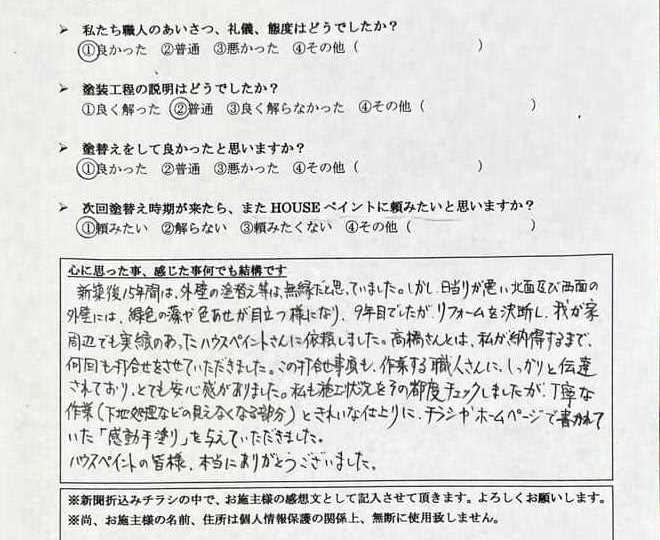 ➢ 私たち職人のあいさつ、礼儀、態度はどうでしたか？
①良かった ②普通 ③悪かった ④その他（ ）
➢ 塗装工程の説明はどうでしたか？
①良く解った ②普通 ③良く解らなかった ④その他（ ）
➢ 塗替えをして良かったと思いますか？
①良かった ②普通 ③悪かった ④その他（ ）
➢ 次回塗替え時期が来たら、また HOUSE ペイントに頼みたいと思いますか？
①頼みたい ②解らない ③頼みたくない ④その他（ ）
心に思った事、感じた事何でも結構です
新築後15年間は、外壁の塗替え等は、無縁だと思っていました。しかし、日当りが悪い北面及び西面の
外壁には、緑色の藻や色あせが目立つ様になり、9年目でしたがリフォームを決断し、我が家
周辺でも実績のあったハウスペイントさんに依頼しました。高橋さんとは、私が納得するまで、
何回も打合せをさせていただきました。この打合せ事項も、作業する職人さんに、しっかりと伝達
されており、とても安心感がありました。私も施工状況をその都度チェックしましたが、丁寧な
作業（下地処理などの見えなくなる部分）ときれいな仕上りに、チラシやホームページで書かれて
いた「感動手塗り」を与えていただきました。
ハウスペイントの皆様、本当にありがとうございました。
※新聞折込みチラシの中で、お施主様の感想文として記入させて頂きます。よろしくお願いします。
※尚、お施主様の名前、住所は個人情報保護の関係上、無断に使用致しません。